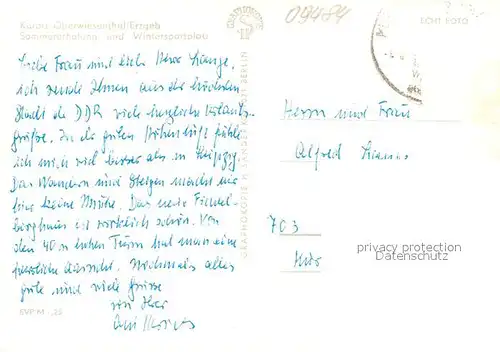 Kurort Oberwiesenthal/Erzgeb
Sommererholung- und Wintersportplatz
Liebe Frau und lieber Herr Lange,
ich sende Ihnen aus der höchsten
Stadt der DDR viele herzliche Urlaubs-
grüße. In der guten Höhenluft fühle
ich mich viel besser als in Leipzig
Das Wandern und Steigen macht mir
hier keine Mühe. Das neue Fichtel-
berghaus ist wirklich schön. Von
dem 40 m hohen Turm hat man eine
herrliche Aussicht. Nochmals alles
gute und viele Grüsse
von Ihrer
SVP M -,25
GRAPHOKOPIE H. SANDER BERLIN
GRAPHOKOPIE
09484
ECHT FOTO
Herrn und Frau
Alfred
703
privacy protection
Datenschutz